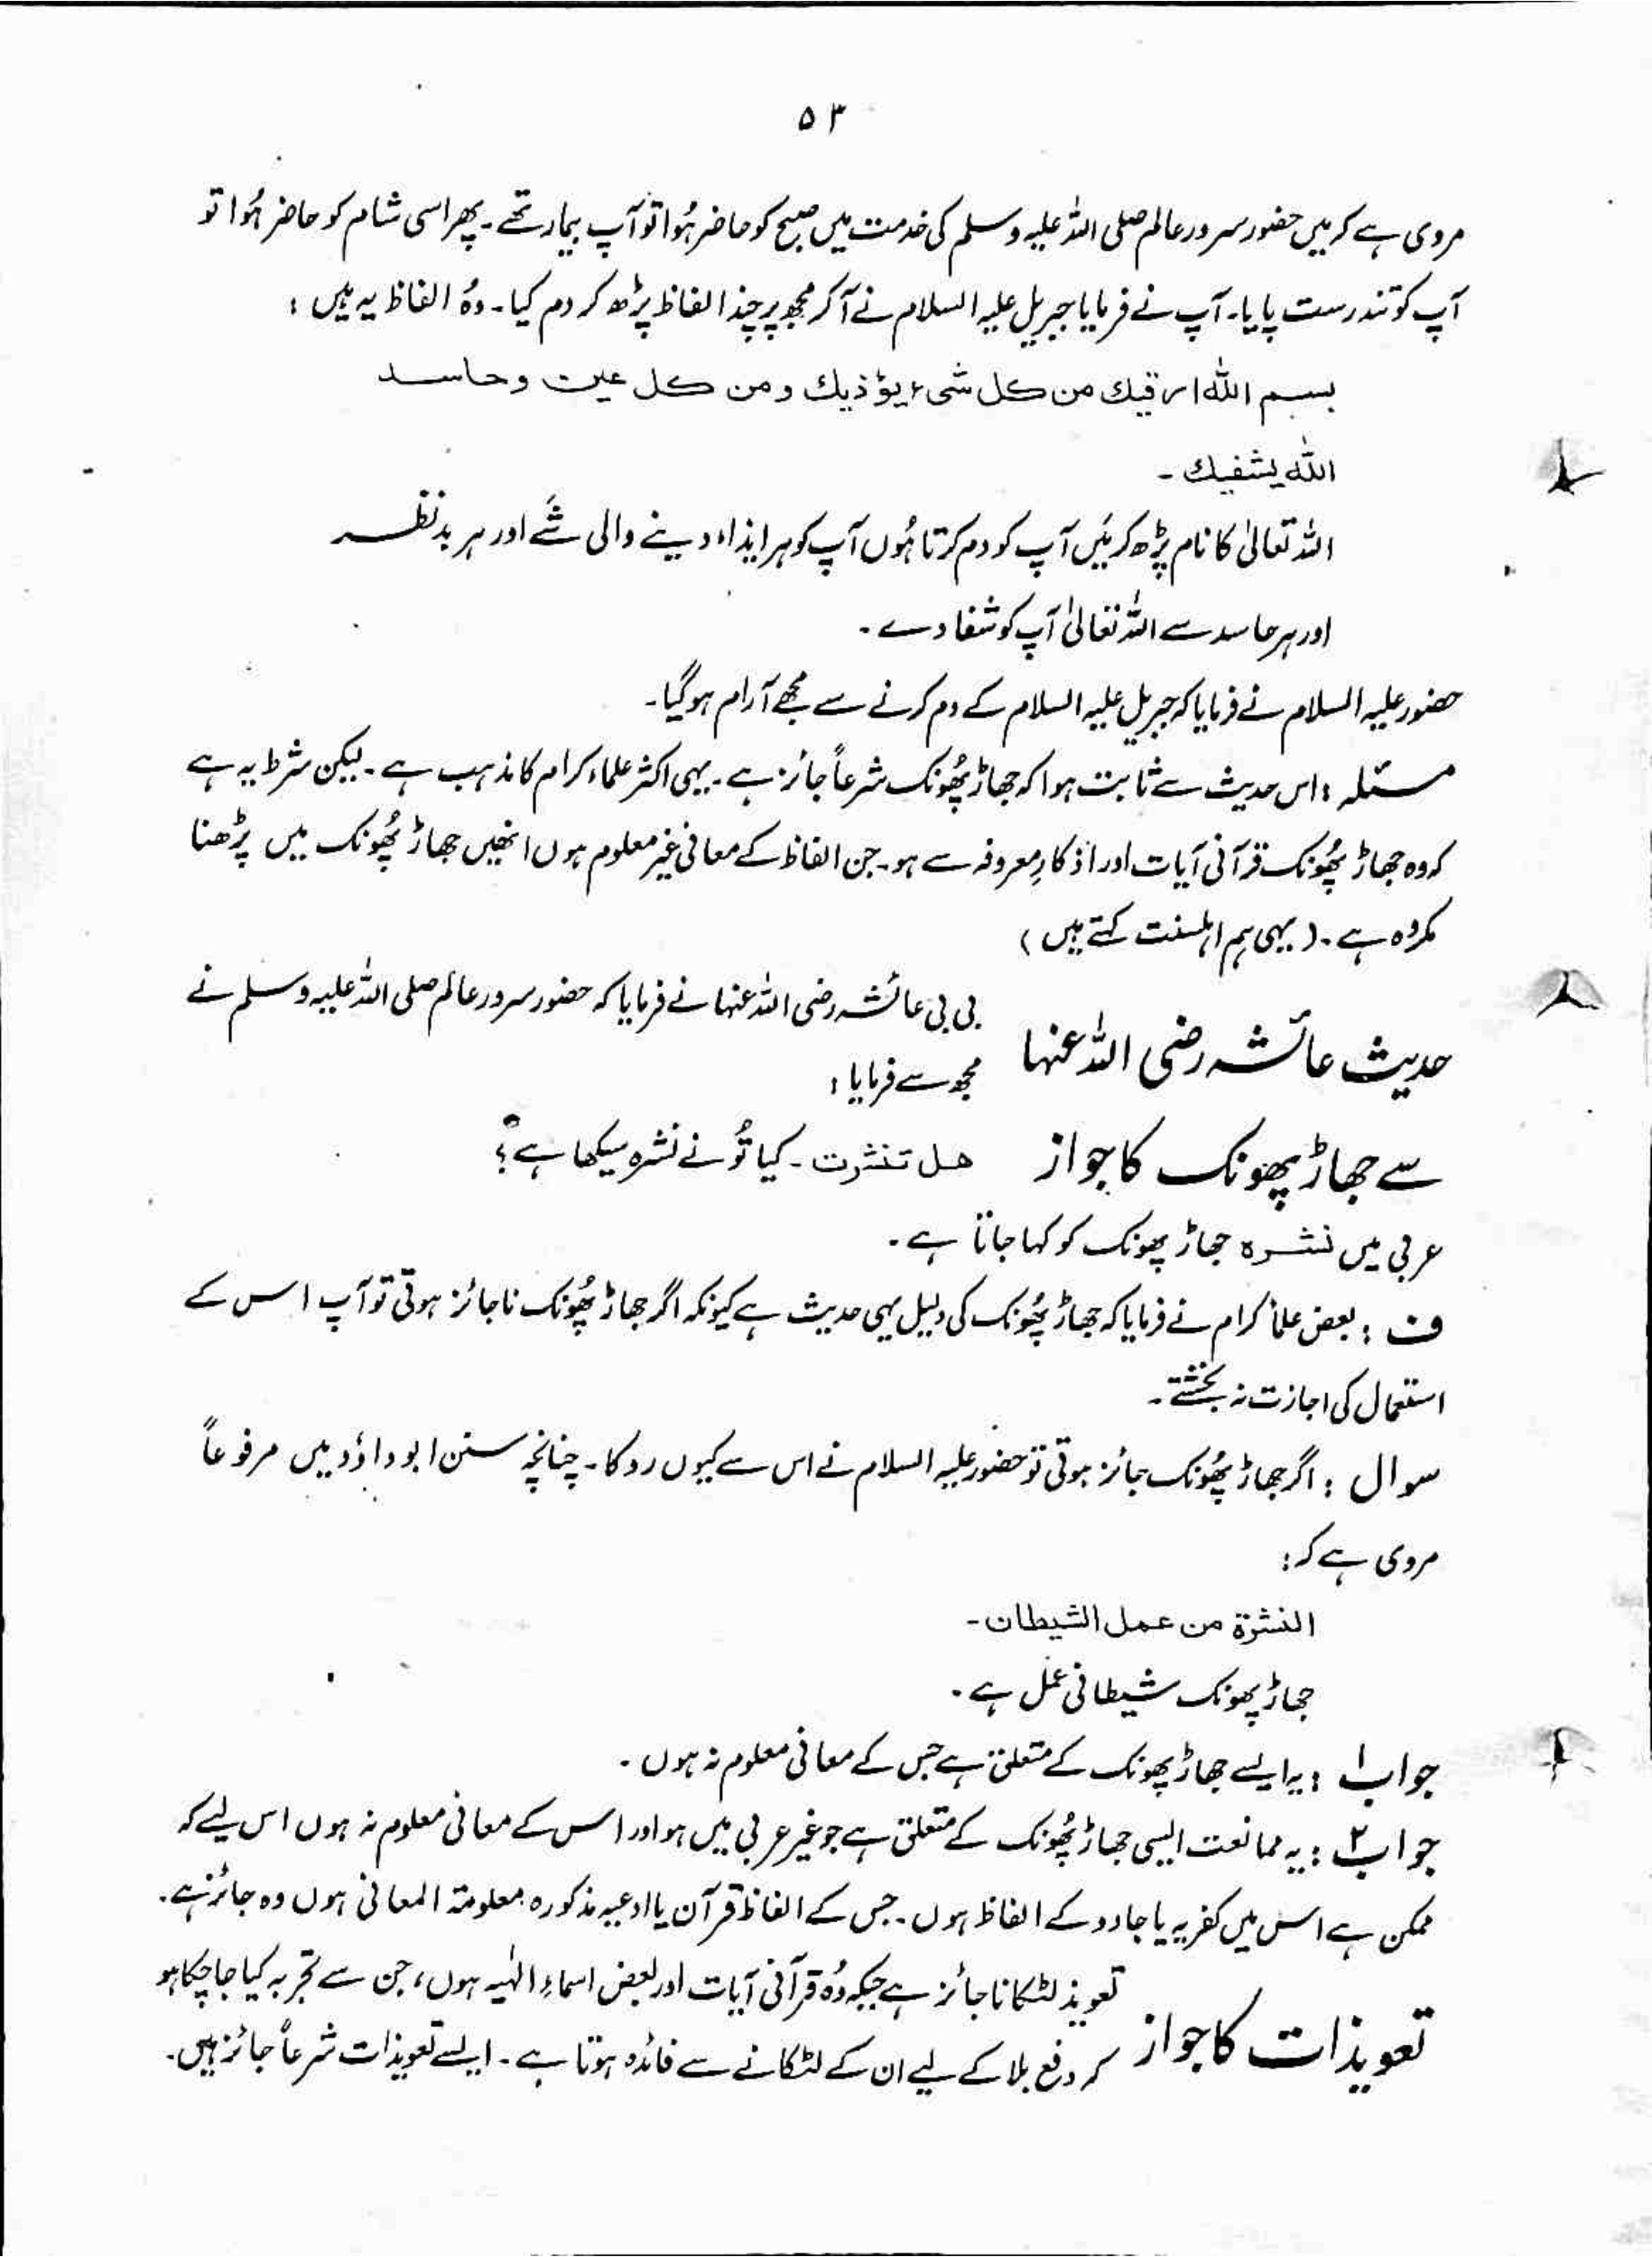 ۵۳
مروی ہے کہ میں حضور سرور عالم صلی اللہ علیہ وسلم کی خدمت میں صبح کو حاضر ہُوا تو آپ بیمار تھے۔ پھر اسی شام کو حاضر ہُوا تو
آپ کو تندرست پایا۔ آپ نے فرمایا جبریل علیہ السلام نے آ کر مجھ پر چند الفاظ پڑھ کر دم کیا۔ وُہ الفاظ یہ ہیں :
بسم اللہ ارقیك من كل شیء یؤذیك ومن كل عین وحاسد
اللہ یشفیك ۔
اللہ تعالیٰ کا نام پڑھ کر میں آپ کو دم کرتا ہُوں آپ کو ہر ایذاء دینے والی شَے اور ہر بد نظر
اور ہر حاسد سے اللہ تعالیٰ آپ کو شفا دے ۔
حضور علیہ السلام نے فرمایا کہ جبریل علیہ السلام کے دم کرنے سے مجھے آرام ہو گیا۔
مسئلہ : اس حدیث سے ثابت ہوا کہ جھاڑ پُھونک شرعاً جائز ہے ۔ یہی اکثر علماء کرام کا مذہب ہے ۔ لیکن شرط یہ ہے
کہ وہ جھاڑ پُھونک قرآنی آیات اور اذکارِ معروفہ سے ہو۔ جن الفاظ کے معانی غیر معلوم ہوں انھیں جھاڑ پُھونک میں پڑھنا
مکروہ ہے ۔ ( یہی ہم اہلسنت کہتے ہیں )
حدیث عائشہ رضی اللہ عنہا
سے جھاڑ پھونک کا جواز
بی بی عائشہ رضی اللہ عنہا نے فرمایا کہ حضور سرور عالم صلی اللہ علیہ وسلم نے
مجھ سے فرمایا :
هل تنشرت ۔ کیا تُو نے نشرہ سیکھا ہے ؟
عربی میں نشرہ جھاڑ پھونک کو کہا جاتا ہے ۔
ف : بعض علماء کرام نے فرمایا کہ جھاڑ پُھونک کی دلیل یہی حدیث ہے کیونکہ اگر جھاڑ پُھونک ناجائز ہوتی تو آپ اس کے
استعمال کی اجازت نہ بخشتے ۔
سوال : اگر جھاڑ پُھونک جائز ہوتی تو حضور علیہ السلام نے اس سے کیوں روکا ۔ چنانچہ سنن ابو داؤد میں مرفوعاً
مروی ہے کہ :
النشرة من عمل الشیطان ۔
جھاڑ پھونک شیطانی عمل ہے ۔
جواب ۱ : یہ ایسے جھاڑ پھونک کے متعلق ہے جس کے معانی معلوم نہ ہوں ۔
جواب ۲ : یہ ممانعت ایسی جھاڑ پُھونک کے متعلق ہے جو غیر عربی میں ہو اور اس کے معانی معلوم نہ ہوں اس لیے کہ
ممکن ہے اس میں کفریہ یا جادو کے الفاظ ہوں ۔ جس کے الفاظ قرآن یا ادعیہ مذکورہ معلومۃ المعانی ہوں وہ جائز ہے ۔
تعویذات کا جواز
تعویذ لٹکانا جائز ہے جبکہ وُہ قرآنی آیات اور بعض اسماءِ الٰہیہ ہوں، جن سے تجربہ کیا جا چکا ہو
کہ دفع بلا کے لیے ان کے لٹکانے سے فائدہ ہوتا ہے ۔ ایسے تعویذات شرعاً جائز ہیں۔